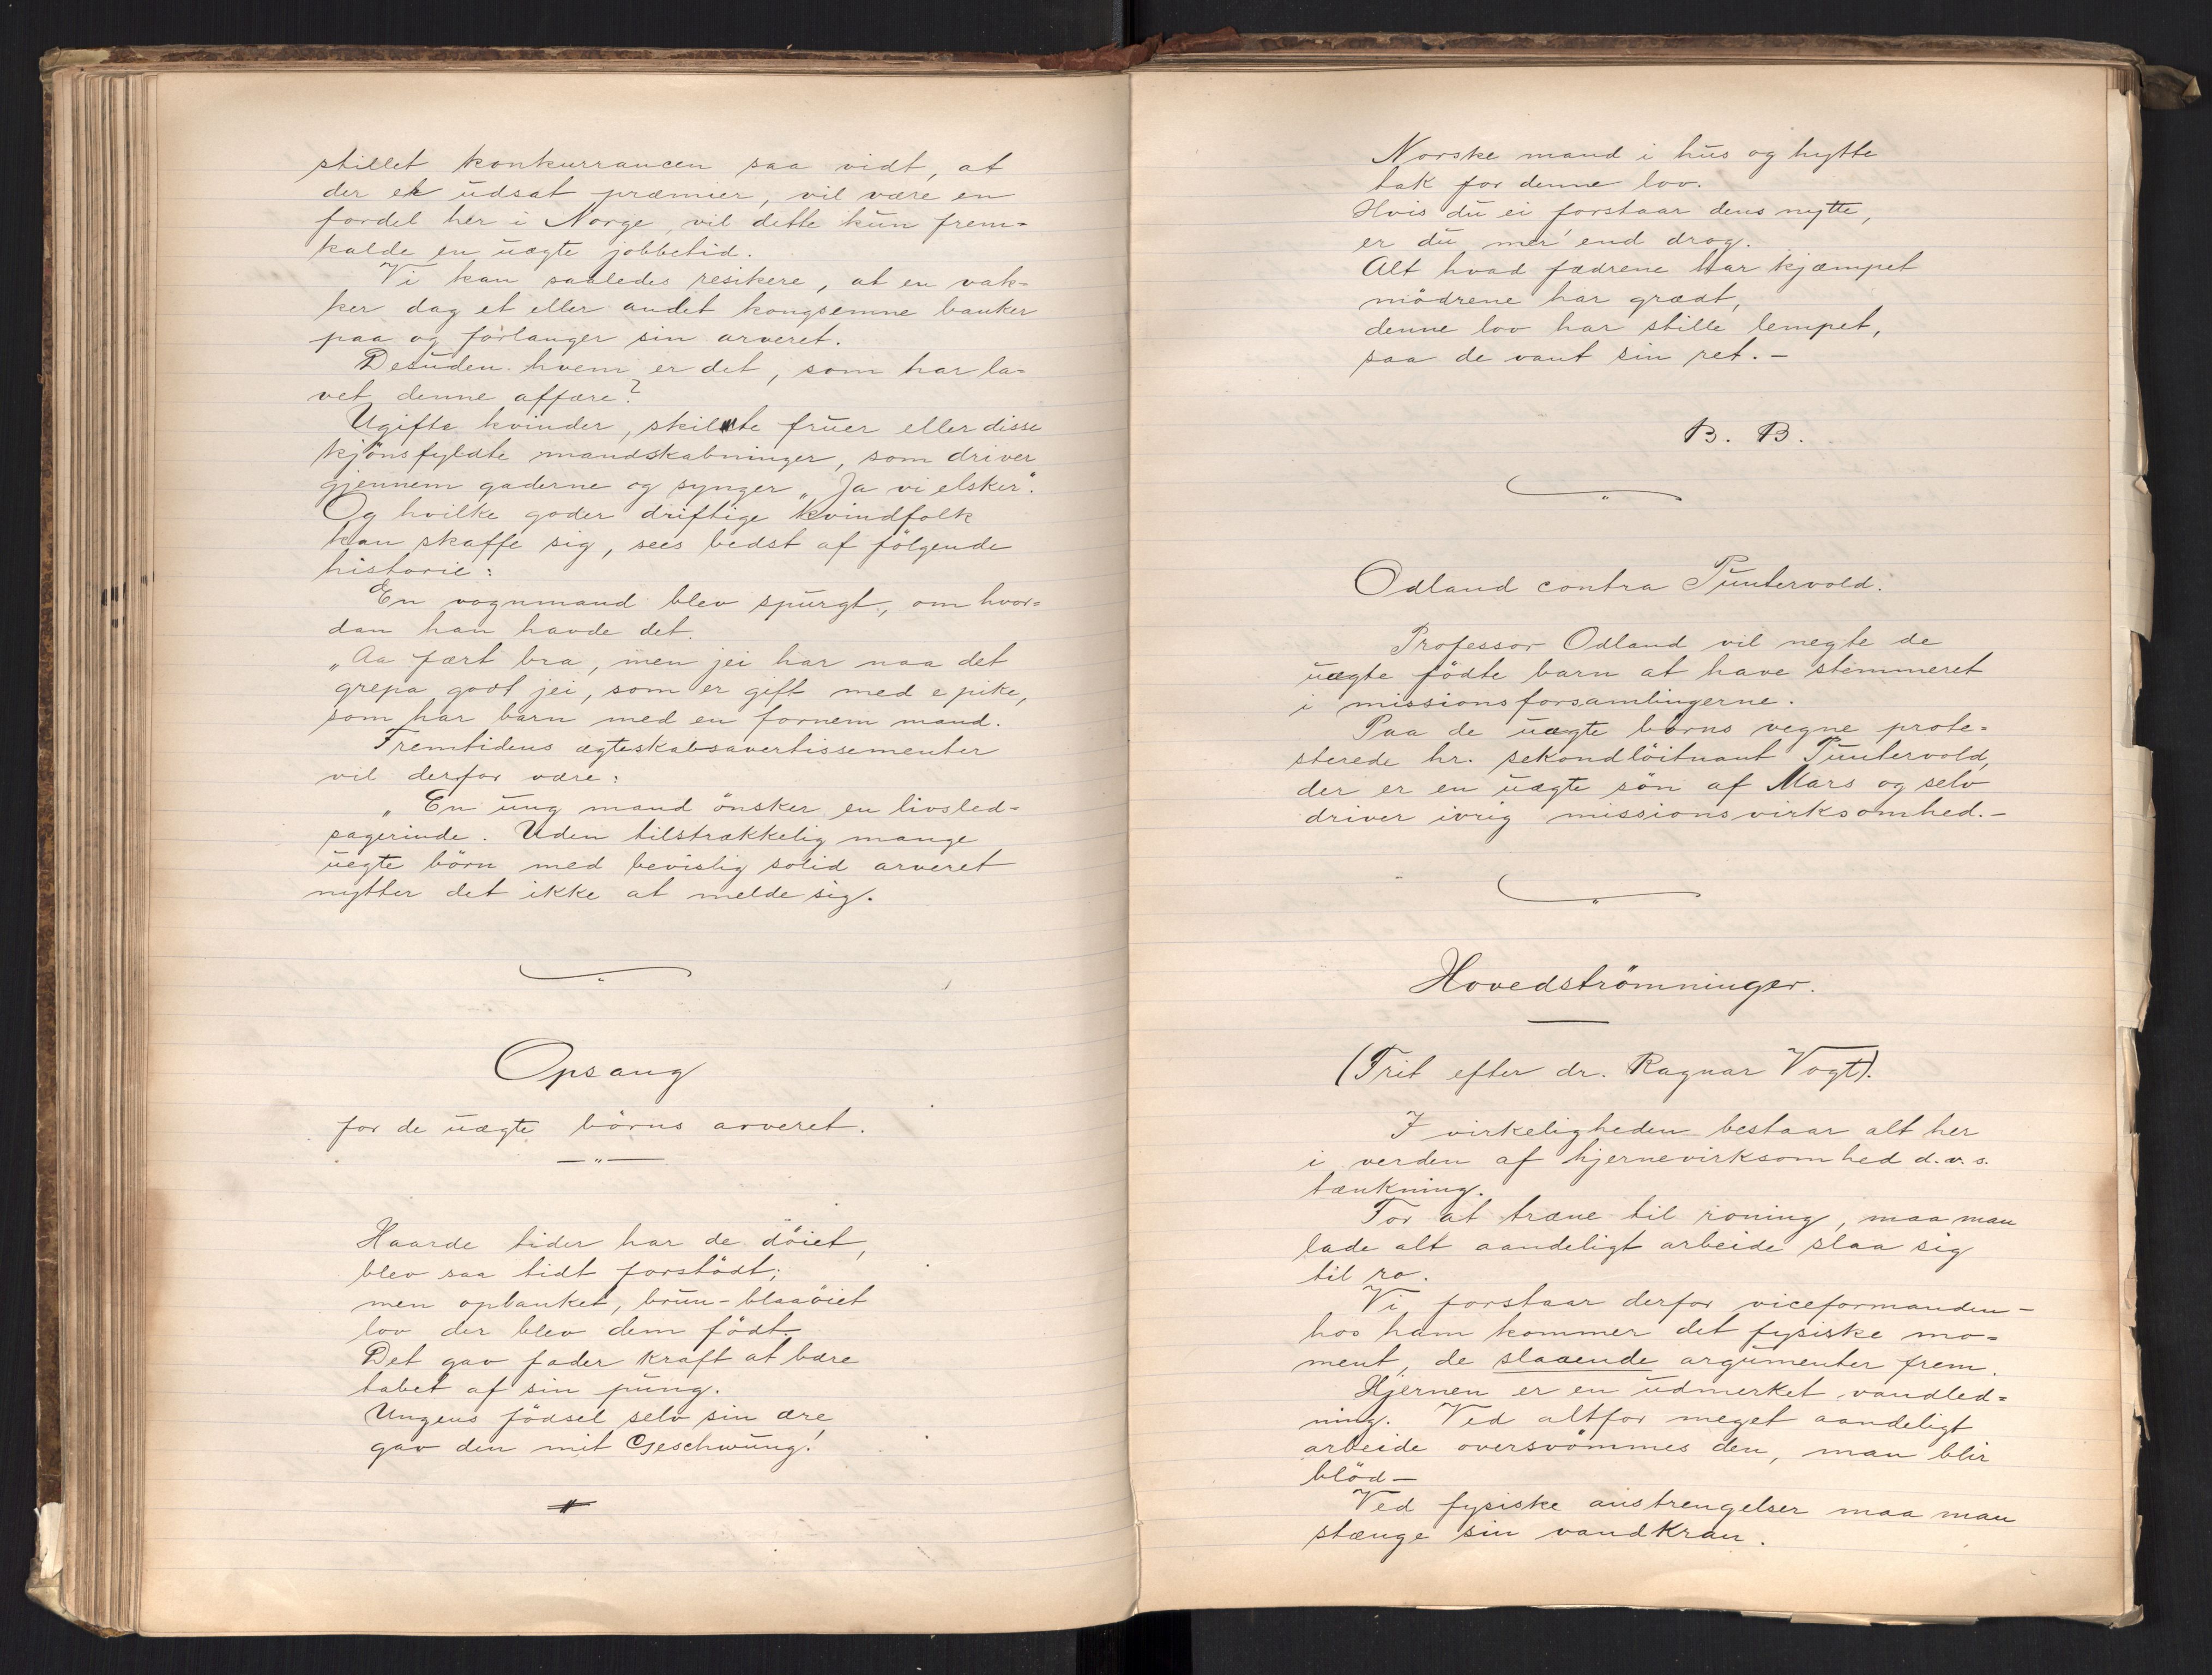 stillet konkurrancen saa vidt, at
der er udsat præmier, vil være en
fordel her i Norge, vil dette kun frem=
kalde en uægte jobbetid.
Vi kan saaledes resikere, at en vak=
ker dag et eller andet kongsemne banker
paa og forlanger sin arveret.
Desuden hvem er det, som har la=
vet denne affære?
Ugifte kvinder, skilte fruer eller disse
kjönsfyldte mandskabninger, som driver
gjennem gaderne og synger „Ja vi elsker".
Og hvilke goder driftige kvindfolk
kan skaffe sig, sees bedst af fölgende
historie:
En vognmand blev spurgt, om hvor=
dan han havde det.
„Aa fært bra, men jei har naa det
grepa godt jei, som er gift med e pike,
som har barn med en fornem mand.
Fremtidens ægteskabsavertissementer
vil derfor være:
„En ung mand önsker en livsled-
sagerinde. Uden tilstrækkelig mange
uegte börn med bevislig solid arveret
nytter det ikke at melde sig.
Opsang
for de uægte börns arveret.
Haarde tider har de döiet,
blev saa tidt forstödt;
men opbanket, brun-blaaöiet
lov der blev dem födt.
Det gav fader kraft at bære
tabet af sin pung.
Ungens födsel selv sin ære
gav den mit Geschwung!
Norske mand i hus og hytte
tak for denne lov.
Hvis du ei forstaar dens nytte,
er du mer' end drog.
Alt hvad fædrene har kjæmpet
mödrene har grædt,
denne lov har stille lempet,
saa de vant sin ret.-
B. B.
Odland contra Puntervold.
Professor Odland vil negte de
uægte födte barn at have stemmeret
i missionsforsamlingerne.
Paa de uægte börns vegne prote=
sterede hr. sekondlöitnant Puntervold,
der er en uægte sön af Mars og selv
driver ivrig missionsvirksomhed.-
Hovedströmninger.
(Frit efter dr. Ragnar Vogt).
I virkeligheden bestaar alt her
i verden af hjernevirksomhed d.v.s.
tænkning.
For at træne til roning, maa man
lade alt aandeligt arbeide slaa sig
til ro.
Vi forstaar derfor viceformanden-
hos ham kommer det fysiske mo=
ment, de slaaende argumenter frem.
Hjernen er en udmerket vandled=
ning. Ved altfor meget aandeligt
arbeide oversvömmes den, man blir
blöd-
Ved fysiske anstrengelser maa man
stænge sin vandkran.